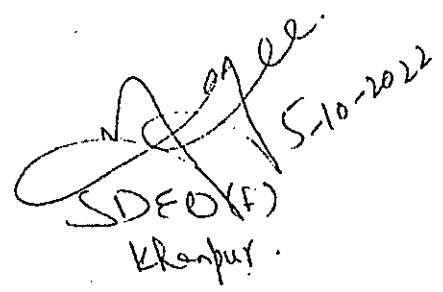 5-10-2022
SDEO(F)
Khanpur.